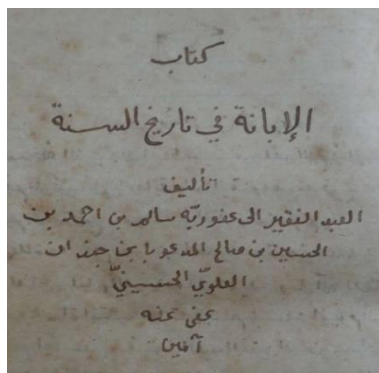 كتاب
الإبانة في تاريخ السنة
تأليف
العبد الفقير الى عفو ربّه سالم بن احمد بن
الحسين بن صالح المدعو بابن جندان
العلويّ الحسينيّ
عفى عنه
آمين